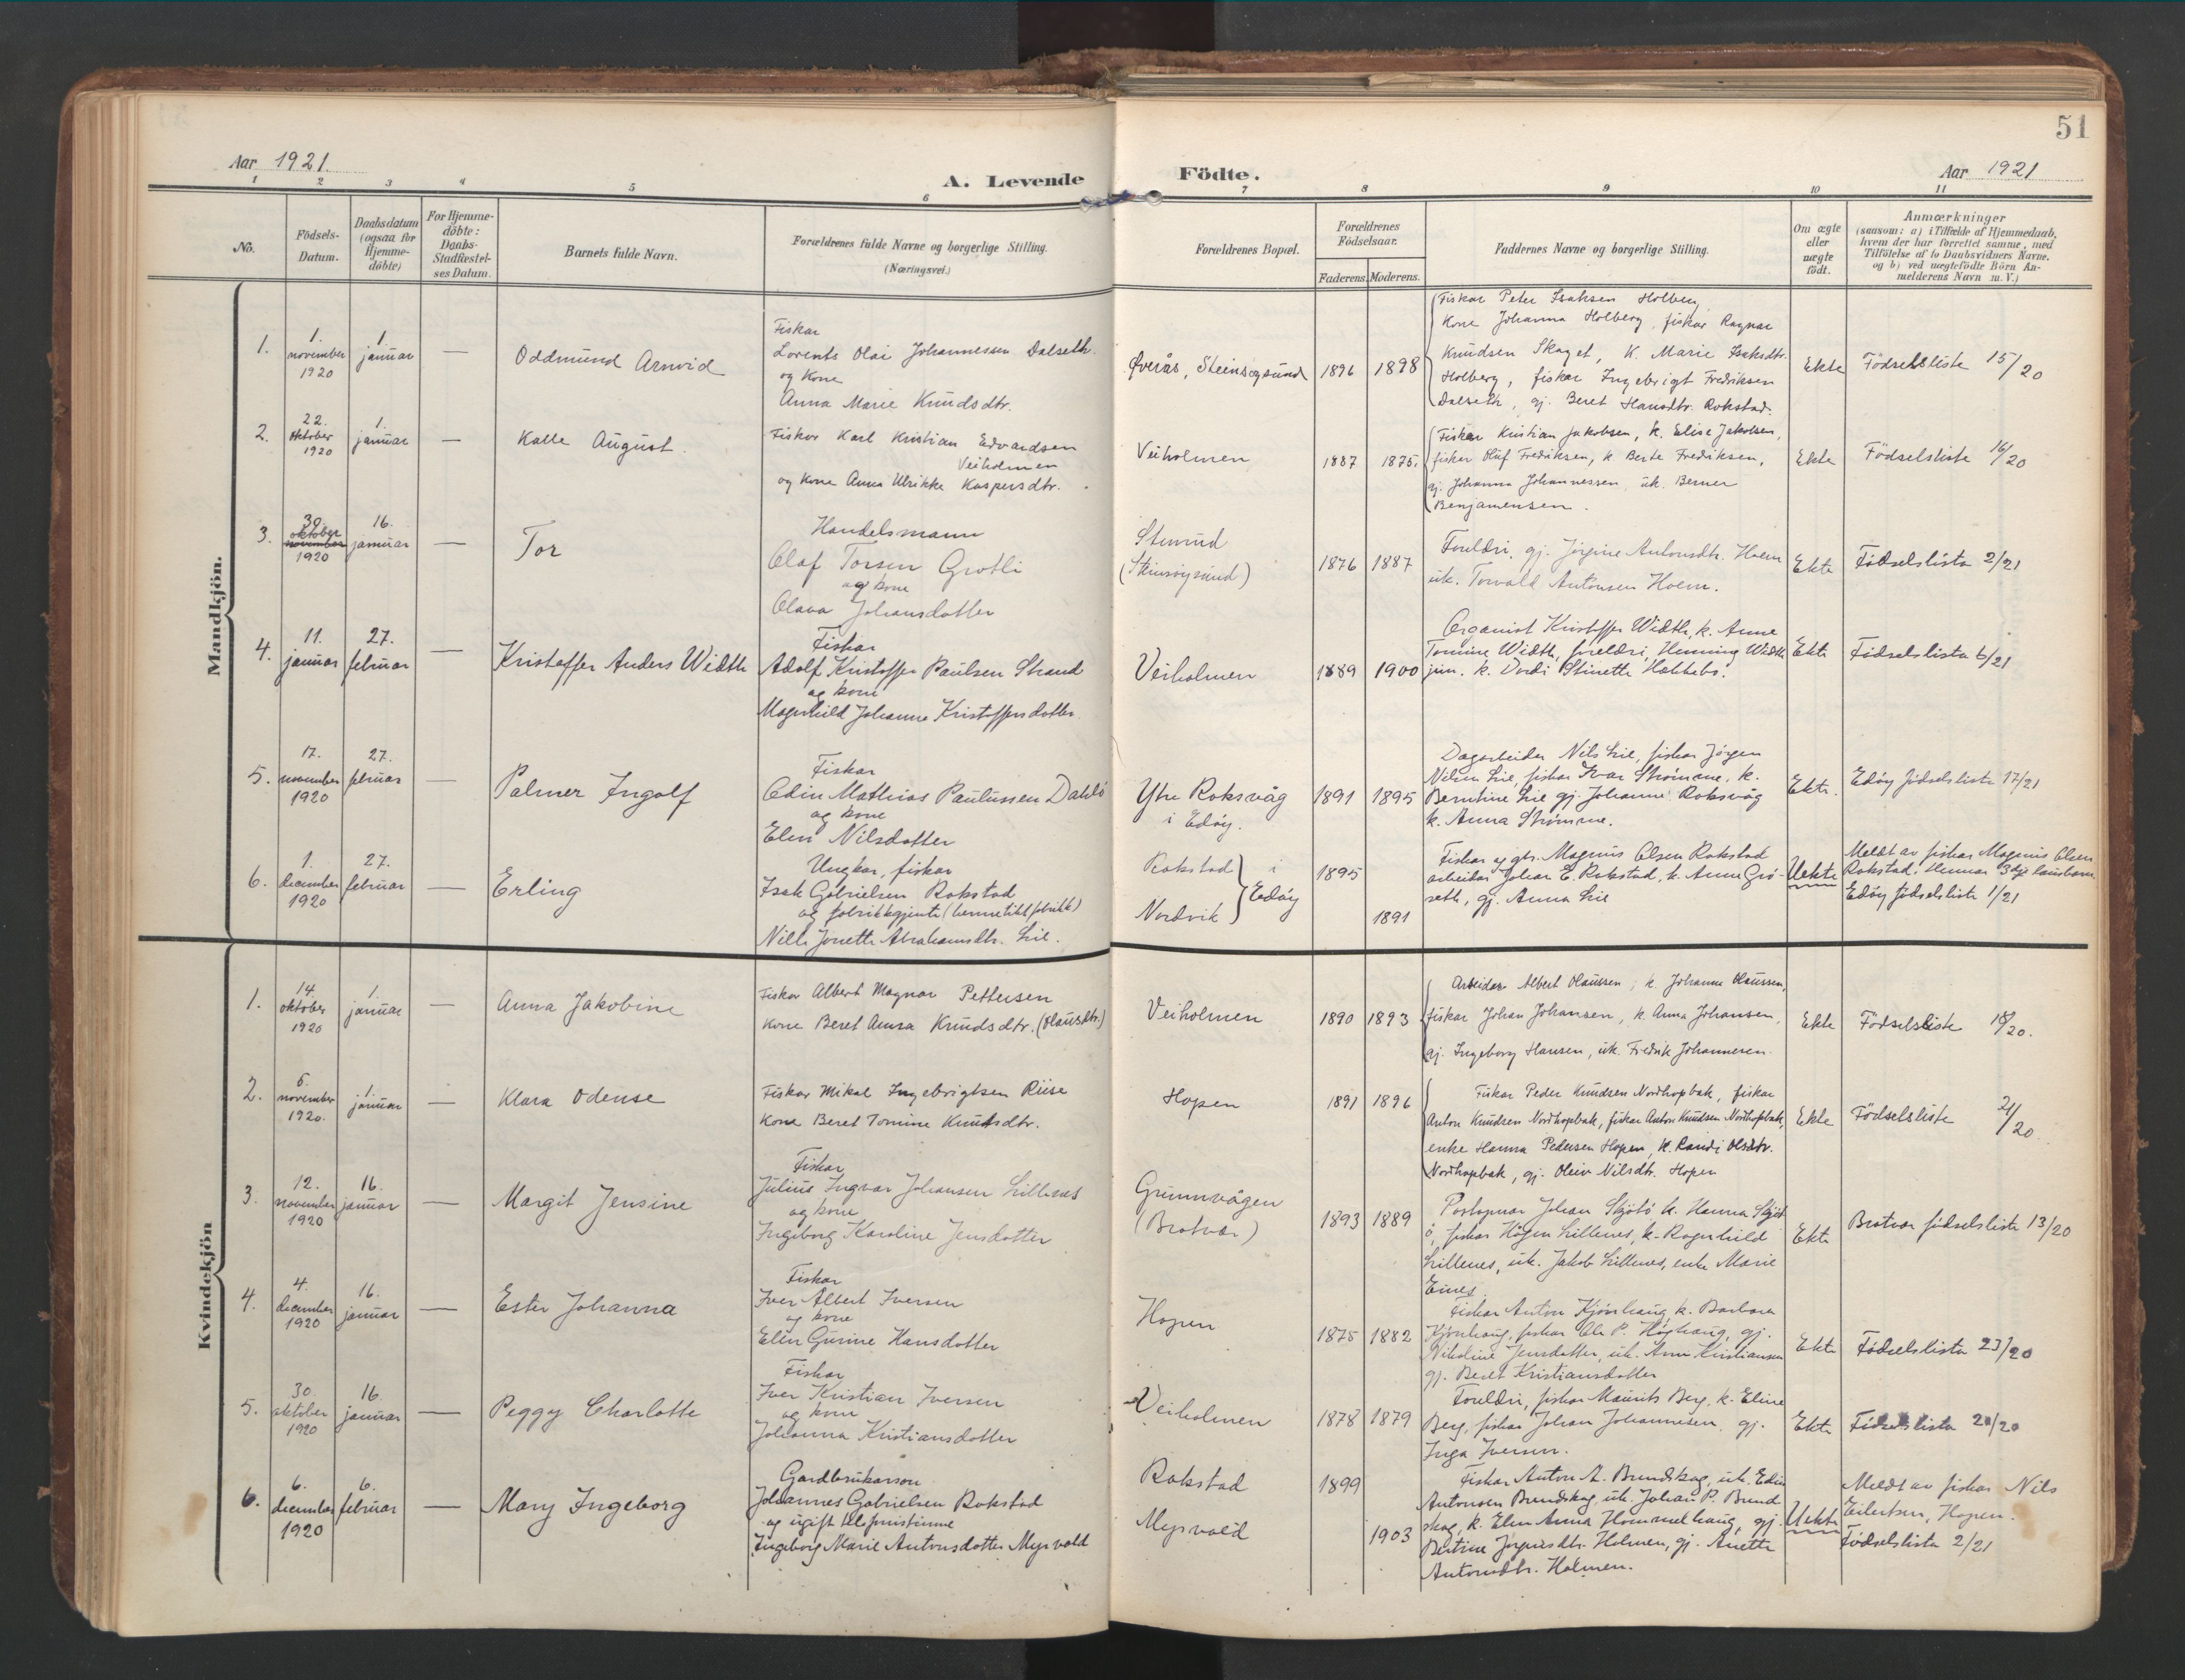 51
Aar 1921.
A. Levende Födte.
Aar 1921
1 2 3 4 5 6 7 8 9 10 11
No.
Födsels-
Datum.
Daabsdatum
(ogsaa for
Hjemme-
döbte)
For Hjemme-
döbte:
Daabs-
Stadfæstel-
ses Datum.
Barnets fulde Navn.
Forældrenes fulde Navne og borgerlige Stilling.
(Næringsvei.)
Forældrenes Bopæl.
Forældrenes
Födselsaar.
Faderens. Moderens.
Faddernes Navne og borgerlige Stilling.
Om ægte
eller
uægte
födt.
Anmærkninger
(saasom: a) i Tilfælde af Hjemmedaab,
hvem der har forrettet samme, med
Tilföielse af to Daabsvidners Navne.
og b) ved uægtefödte Börn An-
melderens Navn m. V.)
Mandkjön.
1.
1.
november
1920
1.
januar
—
Oddmund Arnvid
Fiskar
Lorents Olai Johannessen Dalseth.
og Kone
Anna Marie Knudsdtr.
Øverås, Steinsøysund
1896
1898
Fiskar Peter Isaksen Holberg,
Kone Johanna Holberg, fiskar Ragnar
Knudsen Skaget, K. Marie Isaksdtr.
Holberg, fiskar Ingebrigt Fredriksen
Dalseth, gj. Beret Hansdtr. Rokstad.
Ekte
Födselsliste 15/20
2.
22.
oktober
1920
1.
januar
—
Kalle August.
Fiskar Karl Kristian Edvardsen
Veiholmen
og Kone Anna Ulrikke Kaspersdtr.
Veiholmen
1887
1875.
Fiskar Kristian Jakobsen, k. Elise Jakobsen,
fisker Oluf Fredriksen, k Berte Fredriksen,
gj. Johanna Johannessen, uk. Berner
Benjamensen.
Ekte
Födselsliste 16/20
3.
30.
oktober
november
1920
16.
januar
—
Tor
Handelsmann
Olaf Torsen Grotli
og kone
Olava Johansdotter
(Steinsøysund)
1876
1887
Foreldri, gj. Jørgine Antonsdtr. Holm
uk. Torvald Antonsen Holm.
Ekte
Fødselslista 2/21
4.
11.
januar
27.
februar
—
Kristoffer Anders Width
Fiskar
Adolf Kristoffer Paulsen Strand
og kone
Magnhild Johanne Kristoffersdotter
Veiholmen
1889
1900
Organist Kristoffer Width, k. Anne
Tomine Width, foreldri, Henning Width
jun. k. Dordi Stinette Hakkebo.
Ekte
Fødselslista 6/21
5.
17.
november
1920
27.
februar
—
Palmer Ingolf
Fiskar
Edin Mathias Paulussen Dahlö
og kone
Elen Nilsdotter
Ytre Roksvåg
i Edøy.
1891
1895
Dagarbeider Nils Lie, fiskar Jørgen
Nilsen Lie, fiskar Ivar Strømme, k.
Berntine Lie gj. Johanne Roksvåg
k. Anna Strømme.
Ekte.
Edøy fødselslista 17/21
6.
1.
december
1920
27.
februar
—
Erling
Ungkar, fiskar
Isak Gabrielsen Rokstad
og fabrikkgjente (hermetikkfabrikk)
Nille Jonette Abrahamsdtr. Lie.
Rokstad
Nordvik
i
Edøy
1895
1891
Fiskar og gbr. Magnus Olsen Rokstad
arbeidar Johan E. Rokstad, k. Anne Grø-
seth, gj. Anna Lie
Uekte
Meldt av fiskar Magnus Olsen
Rokstad. Hennar 3dje
Edøy fødselslista 1/21
Kvindekjön
1.
14.
oktober
1920
1.
januar
—
Anna Jakobine
Fiskar Albert Magnar Pettersen
Kone Beret Anna Knudsdtr. (Olausdtr.)
Veiholmen
1890
1893
Arbeider Albert Olaussen, k. Johanna Olaussen,
fiskar Johan Johansen, k. Anna Johansen,
gj. Ingeborg Hansen, uk. Fredrik Johannesen.
Ekte
Födselsliste 18/20.
2.
6.
november
1920.
1.
januar
—
Klara Odense
Fiskar Mikal Ingebrigtsen Riise
Kone Beret Tomine Knutsdtr.
Hopen
1891
1896
Fiskar Peder Knudsen Nordhopbak, fiskar
Anton Knudsen Nordhopbak, fiskar Anton Knudsen Nordhopbak,
enke Hanna Pedersen Hopen, K. Randi Olsdtr.
Nordhopbak, gj. Oleiv Nilsdtr. Hopen
Ekte
Födselsliste 21/20
3.
12.
november
1920
16.
januar
—
Margit Jensine
Fiskar
Julius Ingvar Johansen Lillenes
og kone
Ingeborg Karoline Jensdotter
Grunnvågen
(Bratvær)
1893
1889
Postopnar Johan Skjøtö k. Hanna Skjøt-
ö, fiskar Hågen Lillenes, k. Ragnhild
Lillenes, uk. Jakob Lillenes, enke Marie
Eines
Ekte
Bratvær fødselslista 13/20
4.
4.
december
1920
16.
januar
—
Ester Johanna
Fiskar
Iver Albert Iversen
og kone
Elen Gurine Hansdotter
Hopen
1875
1882
Fiskar Anton Kjønhaug k. Barbara
Kjønhaug, fiskar Ole P. Høghaug, gj.
Nikoline Jensdotter, uk. Arne Kristiansen
gj. Beret Kristiansdotter
Ekte
Fødselslista 23/20
5.
30.
oktober
1920
16.
januar
—
Peggy Charlotte
Fiskar
Iver Kristian Iversen
og kone
Johanna Kristiansdotter
Veiholmen
1878
1879
Foreldri, fiskar Maurits Berg, k. Eline
Berg, fiskar Johan Johannesen, gj.
Inga Iversen.
Ekte
Fødselslista 20/20
6.
6.
december
1920
6.
februar
—
Mary Ingeborg
Gardbrukarson
Johannes Gabrielsen Rokstad
og ugift
Ingeborg Marie Antonsdotter Myrvold
Rokstad
Myrvold
1899
1903
Fiskar Anton A. Brundskag, uk. Edin
Antonsen Brundskag, uk. Johan P. Brund-
skag, k. Elen Anna Hommelhaug, gj.
Bertine Jørginsdtr. Holmen, gj. Anette
Antonsdtr. Holmen.
Uekte
Meldt av fiskar Nils
Eilertsen, Hopen.
Fødselslista 2/21